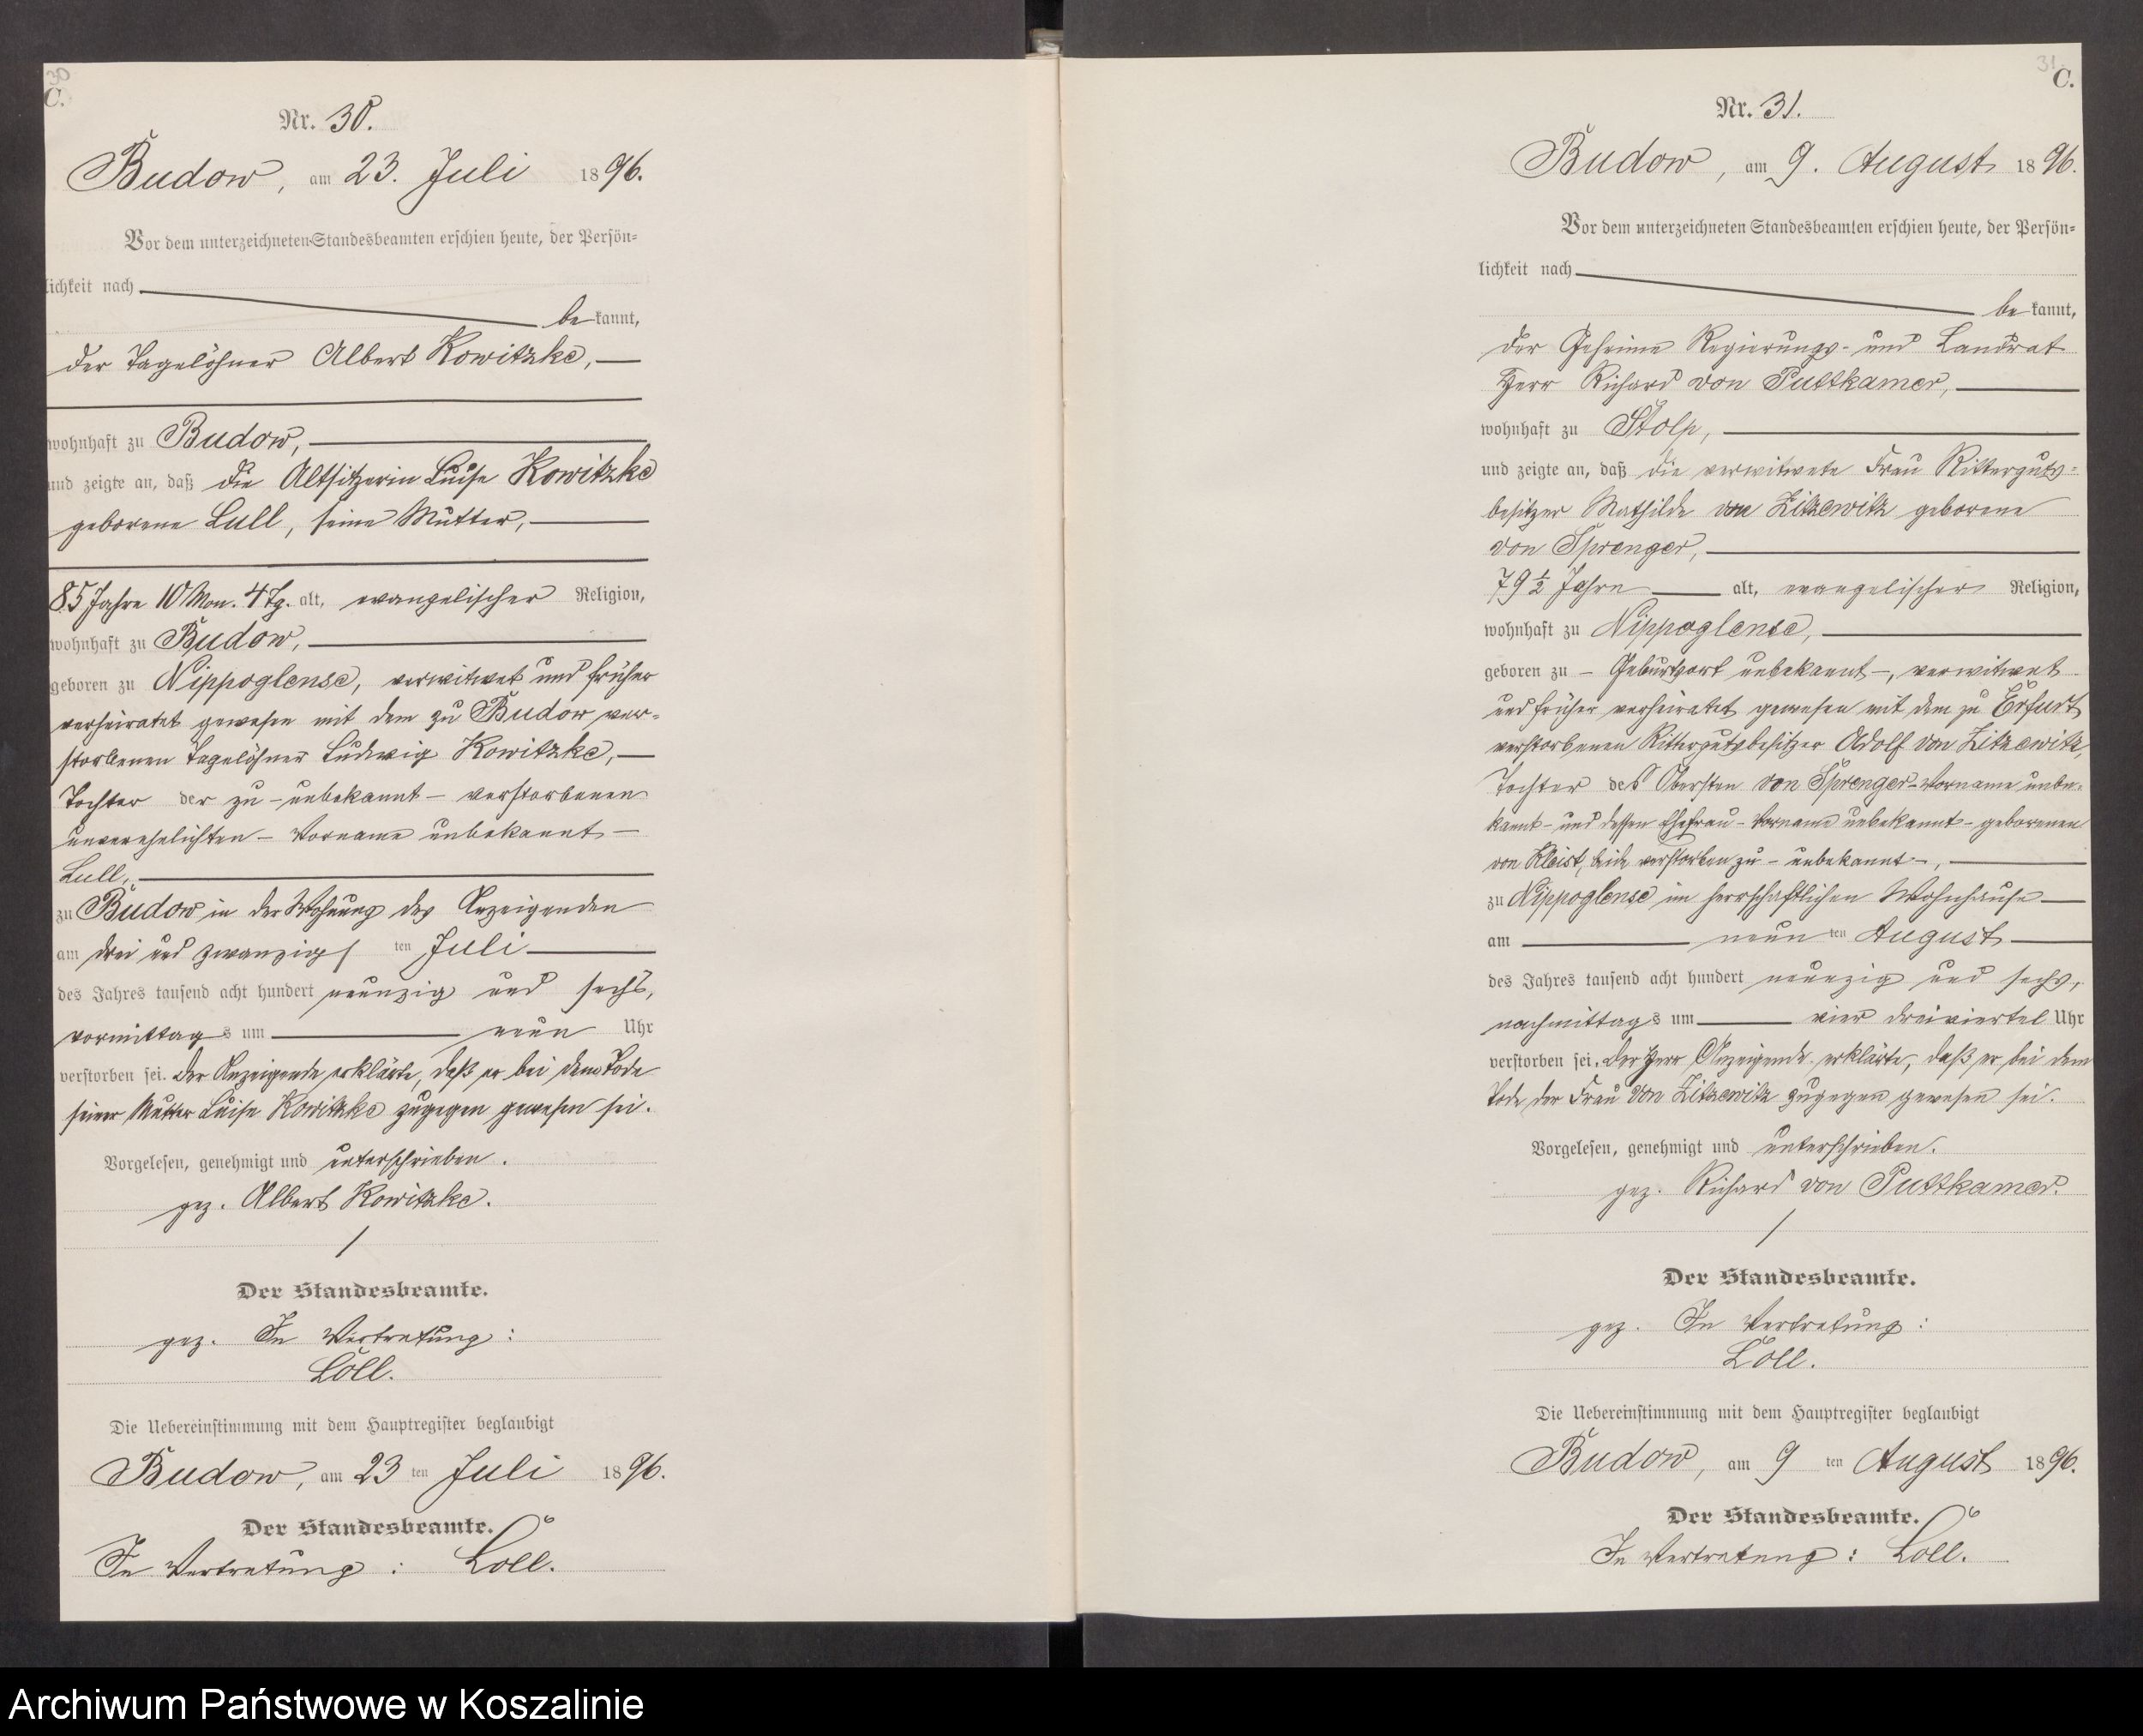 30
C.
Nr. 30.
Budow, am 23. Juli 1896.
Vor dem unterzeichneten Standesbeamten erschien heute, der Persön-
lichkeit nach
bekannt,
der Tagelöhner Albert Kowitzke,
wohnhaft zu Budow,
und zeigte an, daß die Altsitzerin Luise Kowitzke
geborene Lull, seine Mutter,
85 Jahre 10 Mon. 4 Tg. alt, evangelischer Religion,
wohnhaft zu Budow,
geboren zu Nippoglense, verwitwet und früher
verheiratet gewesen mit dem zu Budow ver-
storbenen Tagelöhner Ludwig Kowitzke,
Tochter der zu – unbekannt – verstorbenen
unverehelichten – Vorname unbekannt –
Lull,
zu Budow in der Wohnung des Anzeigenden
am drei und zwanzigsten Juli
des Jahres tausend acht hundert neunzig und sechs,
vormittags um neun Uhr
verstorben sei. Der Anzeigende erklärte, daß er bei dem Tode
seiner Mutter Luise Kowitzke zugegen gewesen sei.
Vorgelesen, genehmigt und unterschrieben.
gez. Albert Kowitzke.
Der Standesbeamte.
gez. In Vertretung:
Löll.
Die Uebereinstimmung mit dem Hauptregister beglaubigt
Budow, am 23ten Juli 1896.
Der Standesbeamte.
In Vertretung: Löll.
31
C.
Nr. 31.
Budow, am 9. August 1896.
Vor dem unterzeichneten Standesbeamten erschien heute, der Persön-
lichkeit nach
bekannt,
der Geheime Regierungs- und Landrat
Herr Richard von Puttkamer,
wohnhaft zu Stolp,
und zeigte an, daß die verwitwete Frau Ritterguts-
besitzer Mathilde von Zitzewitz geborene
von Sprenger,
79 ½ Jahre alt, evangelischer Religion,
wohnhaft zu Nippoglense,
geboren zu – Geburtsort unbekannt –, verwitwet
und früher verheiratet gewesen mit dem zu Erfurt
verstorbenen Rittergutsbesitzer Adolf von Zitzewitz,
Tochter des Obersten von Sprenger – Vorname unbe-
kannt – und dessen Ehefrau – Vorname unbekannt – geborenen
von Kleist, beide verstorben zu – unbekannt –,
zu Nippoglense im herrschaftlichen Wohnhause
am neunten August
des Jahres tausend acht hundert neunzig und sechs,
nachmittags um vier dreiviertel Uhr
verstorben sei. Der Herr Anzeigende erklärte, daß er bei dem
Tode der Frau von Zitzewitz zugegen gewesen sei.
Vorgelesen, genehmigt und unterschrieben.
gez. Richard von Puttkamer.
Der Standesbeamte.
gez. In Vertretung:
Löll.
Die Uebereinstimmung mit dem Hauptregister beglaubigt
Budow, am 9ten August 1896.
Der Standesbeamte.
In Vertretung: Löll.
Archiwum Państwowe w Koszalinie